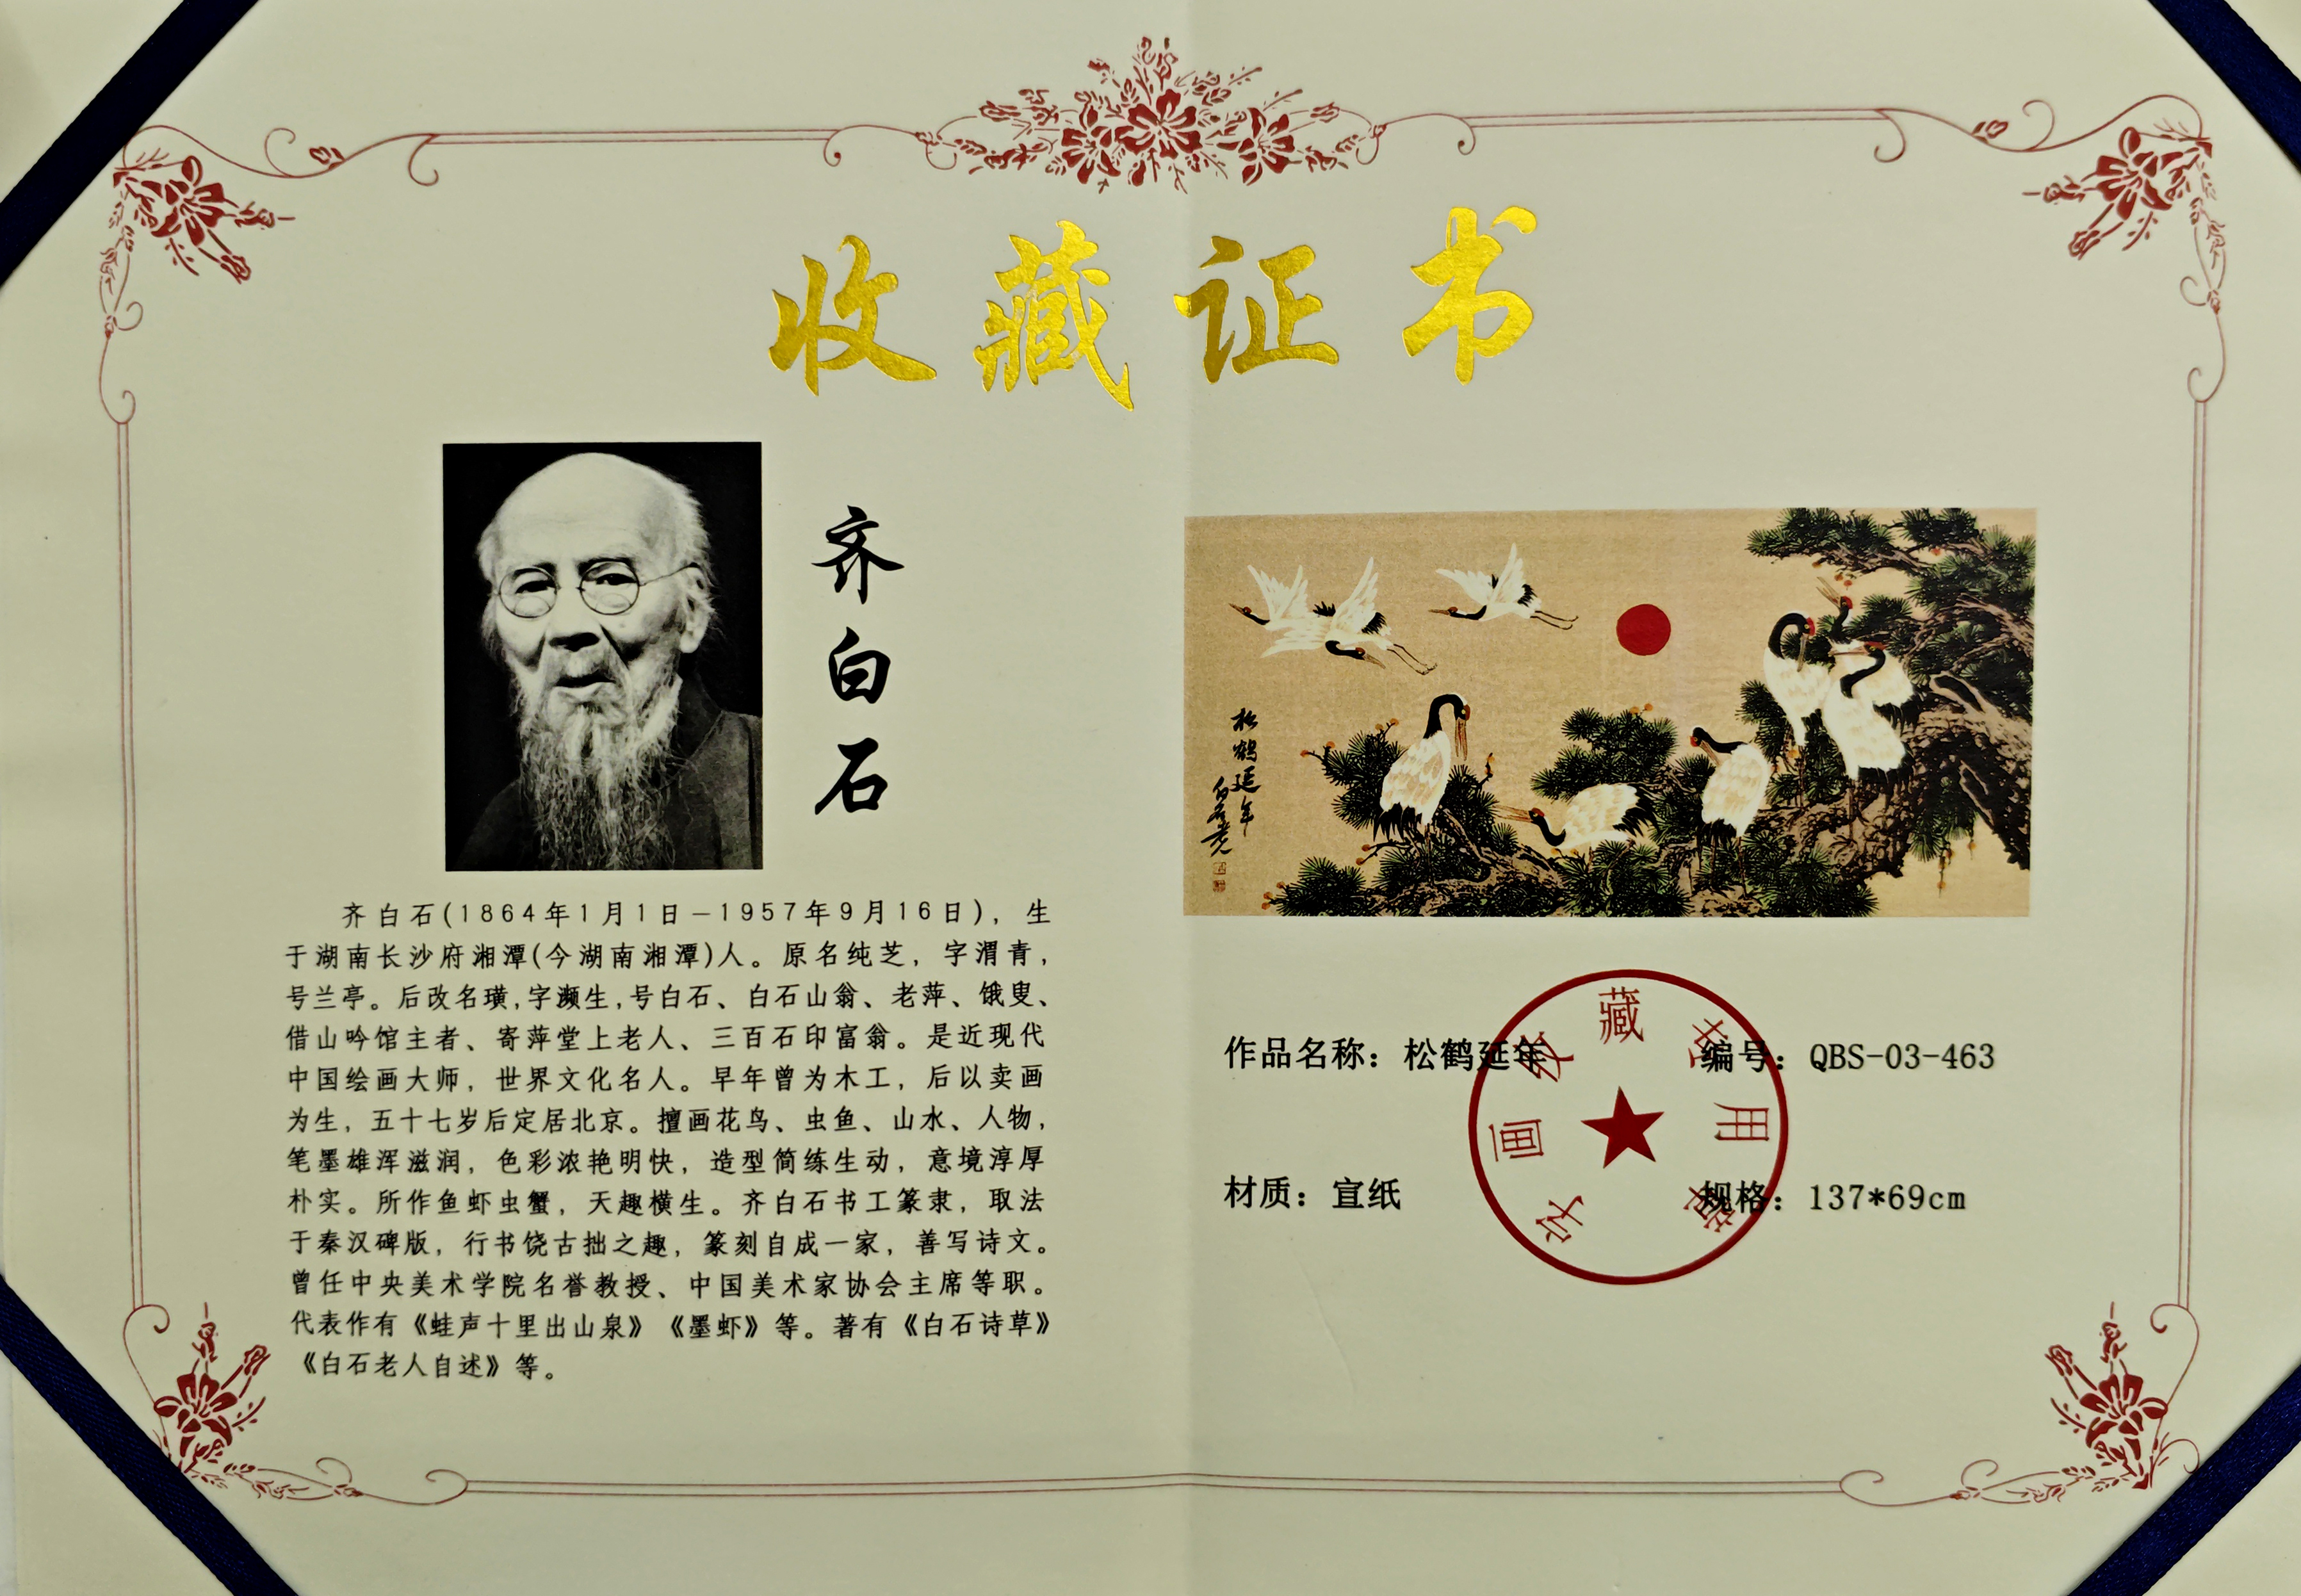 收藏证书
齐白石
齐白石(1864年1月1日-1957年9月16日)，生
于湖南长沙府湘潭(今湖南湘潭)人。原名纯芝，字渭青，
号兰亭。后改名璜,字濒生,号白石、白石山翁、老萍、饿叟、
借山吟馆主者、寄萍堂上老人、三百石印富翁。是近现代
中国绘画大师，世界文化名人。早年曾为木工，后以卖画
为生，五十七岁后定居北京。擅画花鸟、虫鱼、山水、人物，
笔墨雄浑滋润，色彩浓艳明快，造型简练生动，意境淳厚
朴实。所作鱼虾虫蟹，天趣横生。齐白石书工篆隶，取法
于秦汉碑版，行书饶古拙之趣，篆刻自成一家，善写诗文。
曾任中央美术学院名誉教授、中国美术家协会主席等职。
代表作有《蛙声十里出山泉》《墨虾》等。著有《白石诗草》
《白石老人自述》等。
松鹤延年
白石老人
作品名称：松鹤延年
编号：QBS-03-463
材质：宣纸
规格：137*69cm
字画收藏专用章